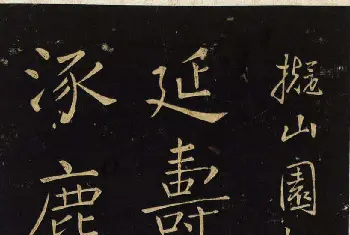 擬山園
延壽
涿鹿